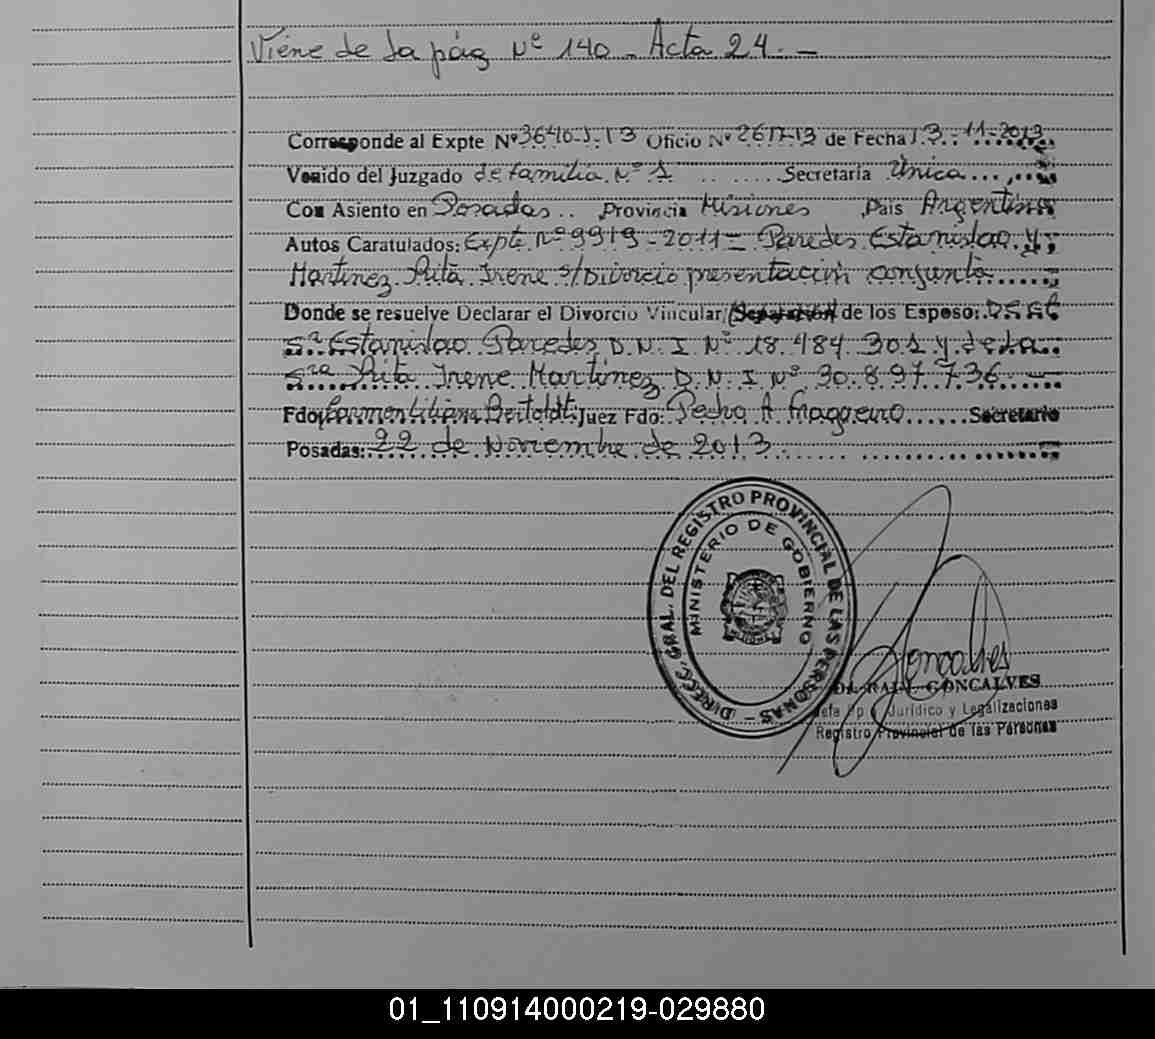 Viene de la pág Nº 140 - Acta 24. -
Corresponde al Expte Nº 3640-J-13 Oficio Nº 2617-13 de Fecha 13-11-2013
Venido del Juzgado de familia Nº 1 Secretaria Unica
Con Asiento en Posadas Provincia Misiones Pais Argentina
Autos Caratulados: Expte nº 9919-2011 - Paredes Estanislao y
Martinez Rita Irene s/Divorcio presentación conjunta
Donde se resuelve Declarar el Divorcio Vincular/(Separación) de los Esposo: DEL
Sr Estanislao Paredes D.N.I Nº 18.484.301 y de la
Sra Rita Irene Martinez D.N.I Nº 30.897.736
Fdo: Carmen Liliana Bertoldt Juez Fdo: Pedro A Fragueiro Secretario
Posadas: 22 de Noviembre de 2013
DIRECC. GRAL. DEL REGISTRO PROVINCIAL DE LAS PERSONAS -
MINISTERIO DE GOBIERNO
Goncalves
GONCALVES
Jurídico y Legalizaciones
Registro Provincial de las Personas
01_110914000219-029880